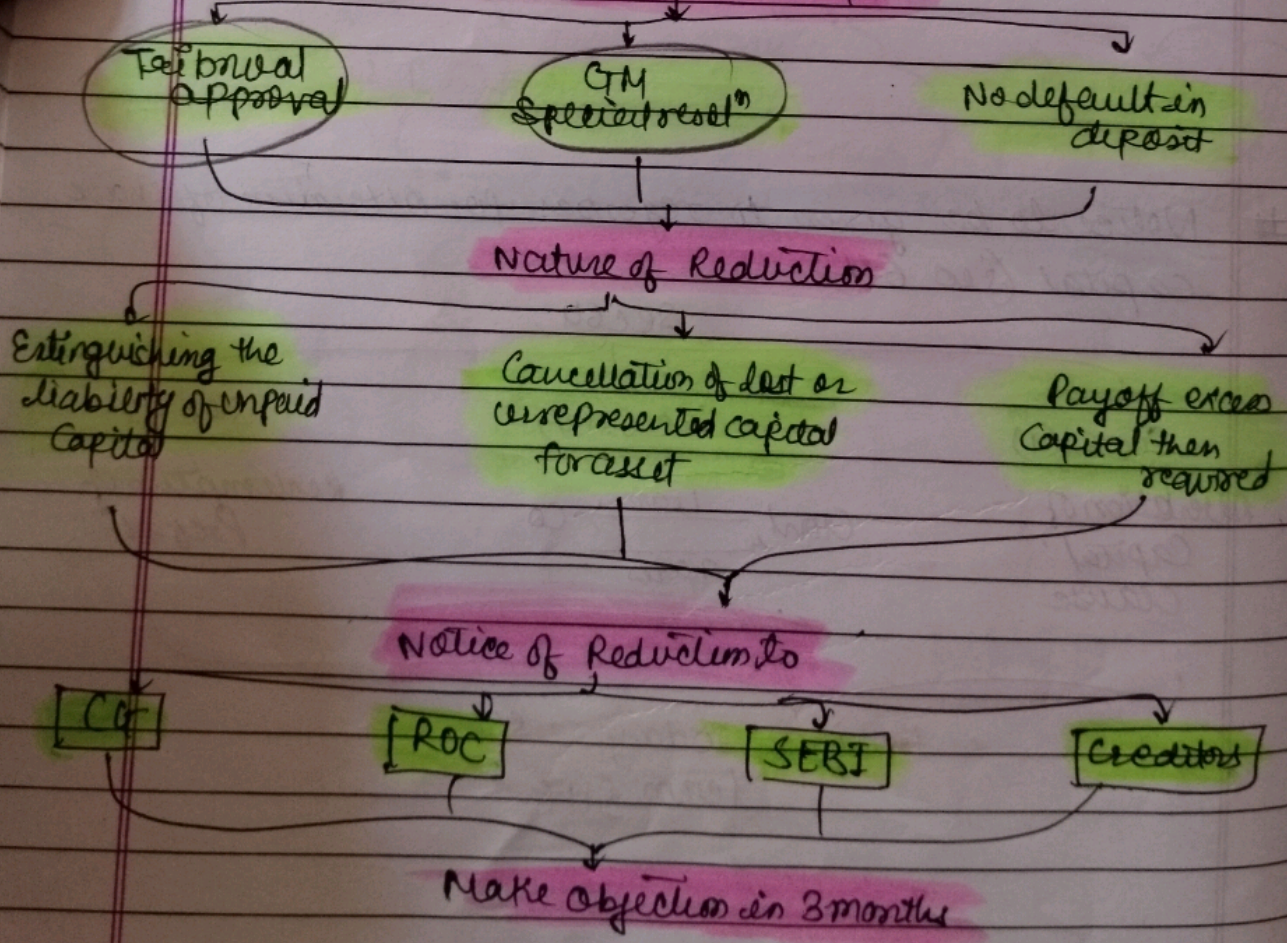 Tribunal
approval
GM
Special resolⁿ
No default in
deposit
Nature of Reduction
Extinguishing the
liability of unpaid
Capital
Cancellation of lost or
unrepresented capital
for asset
Payoff excess
Capital then
required
Notice of Reduction to
CG
ROC
SEBI
Creditors
Make objection in 3 months